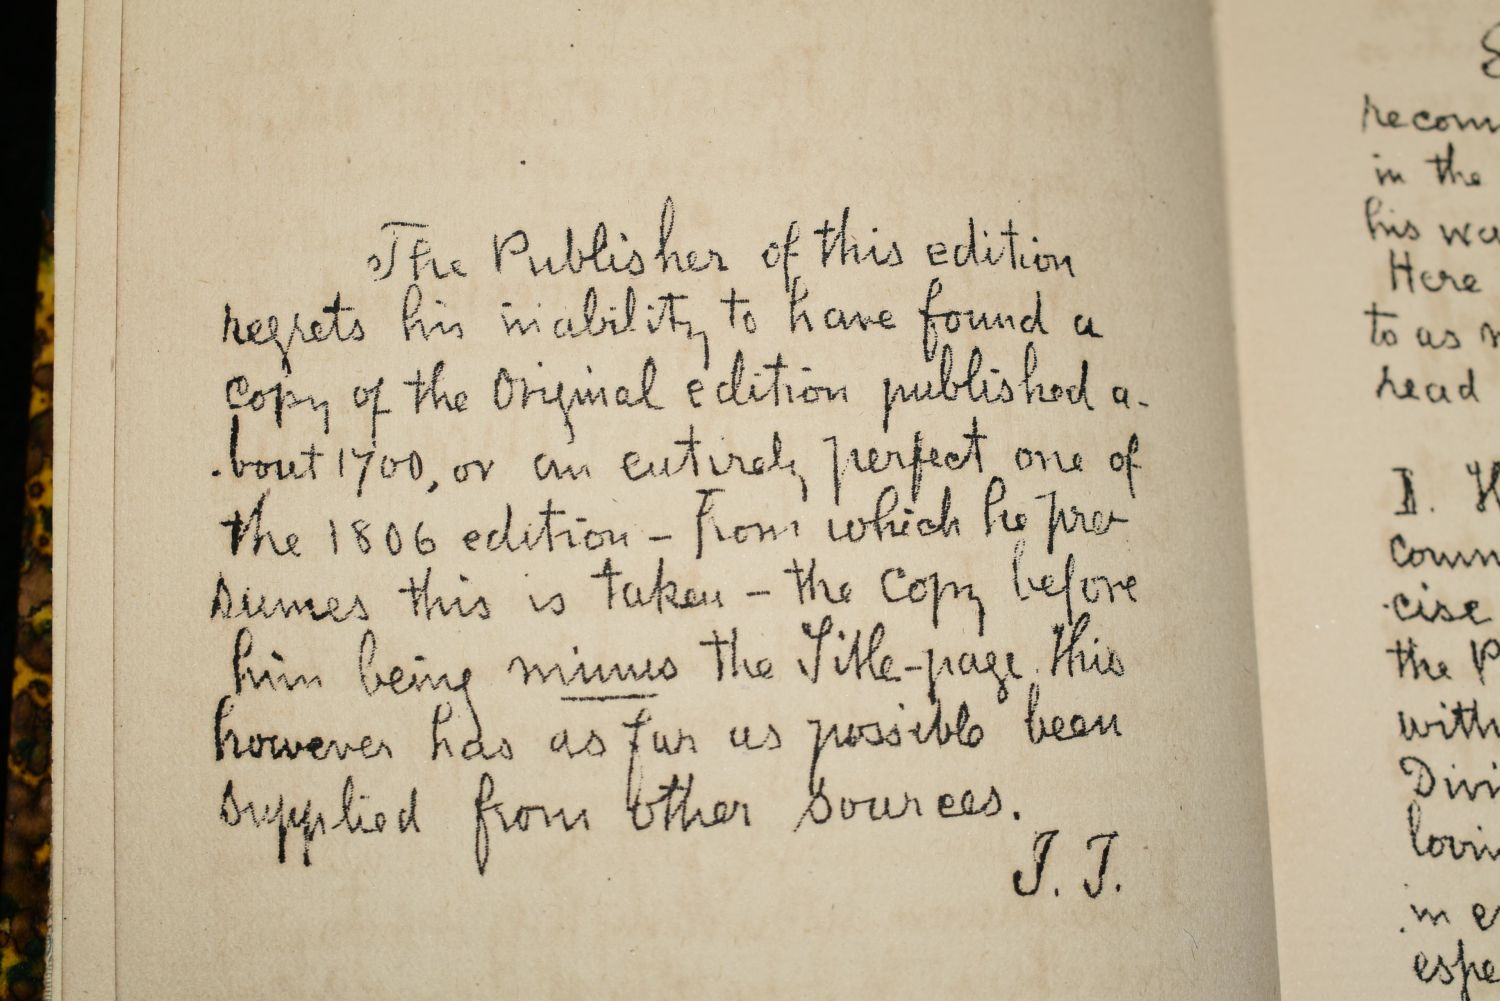 The Publisher of this edition
regrets his inability to have found a
Copy of the Original edition published a-
-bout 1700, or an entirely perfect one of
the 1806 edition - from which he pre-
sumes this is taken - the Copy before
him being minus the Title-page. this
however has as far as possible been
supplied from other sources.
J. T.
recom
in the
his wa
Here
to as
read
I. H
comm
-cise
the P
with
Divi
lovin
in e
espe